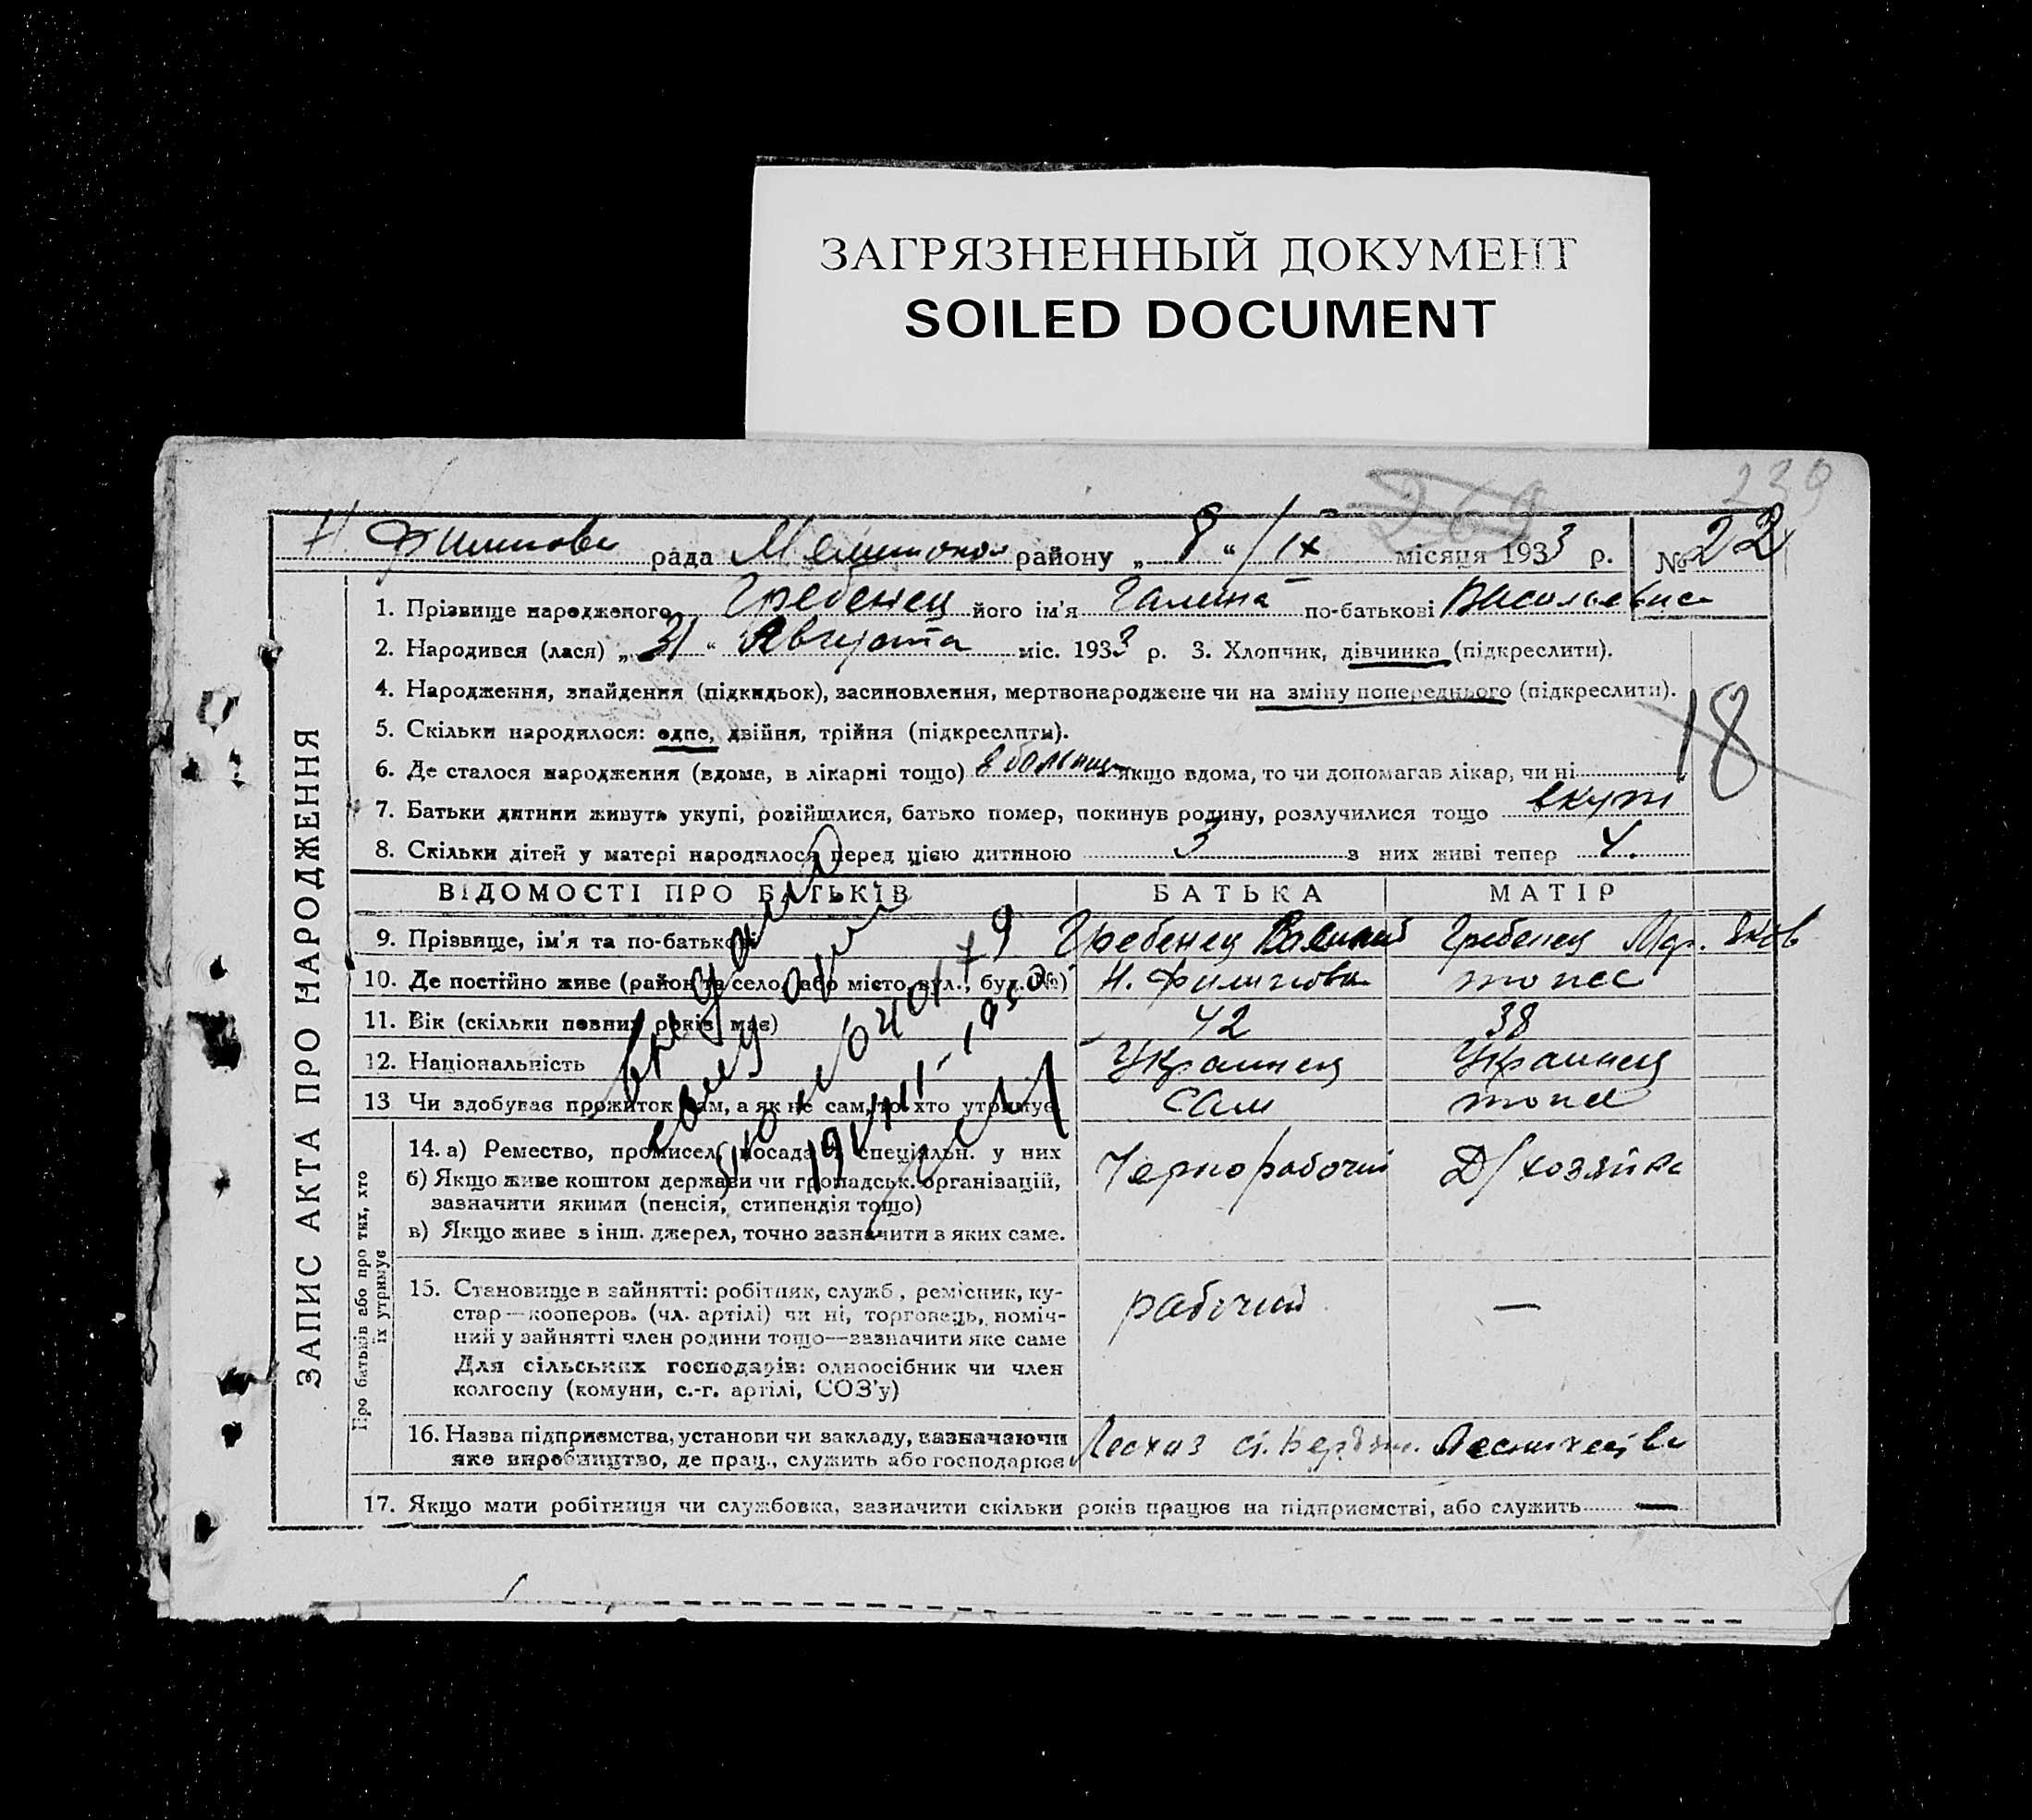 ЗАГРЯЗНЕННЫЙ ДОКУМЕНТ
SOILED DOCUMENT
239
269
Н. рада район „ 8 “ / IX місяця 1933 р. № 22
ЗАПИС АКТА ПРО НАРОДЖЕННЯ
1. Прізвище народженого Гребенец його ім'я Галина по-батькові
2. Народився (лася) „ 31 “ Августа міс. 1933 р. 3. Хлопчик, дівчинка (підкреслити).
4. Народження, знайдення (підкидьок), засиновлення, мертвонароджене чи на зміну попереднього (підкреслити).
18
5. Скільки народилося: одне, двійня, трійня (підкреслити).
6. Де сталося народження (вдома, в лікарні тощо) якщо вдома, то чи допомагав лікар, чи ні
7. Батьки дитини живуть укупі, розійшлися, батько помер, покинув родину, розлучилися тощо вкупі
8. Скільки дітей у матері народилося перед цією дитиною 3 з них живі тепер 4.
ВІДОМОСТІ ПРО БАТЬКІВ БАТЬКА МАТІР
9. Прізвище, ім'я та по-батькові Гребенец Василий Гребенец
10. Де постійно живе (район та село, або місто, вул., буд. №) Н.
11. Вік (скільки повних років має) 42 38
12. Національність Украинец Украинец
13 Чи здобуває прожиток сам, а як не сам, то хто утримує сам
Про батьків або про тих, хто їх утримує
14. а) Ремество, промисел, посада й спеціяльн. у них Чернорабочий Д/хозяйка
б) Якщо живе коштом держави чи громадськ. організацій,
зазначити якими (пенсія, стипендія тощо)
в) Якщо живе з інш. джерел, точно зазначити з яких саме.
15. Становище в зайнятті: робітник, служб., ремісник, ку-
стар—кооперов. (чл. артілі) чи ні, торговець, поміч- рабочий —
ний у зайнятті член родини тощо—зазначити яке саме
Для сільських господарів: одноосібник чи член
колгоспу (комуни, с.-г. артілі, СОЗ'у)
16. Назва підприємства, установи чи закладу, зазначаючи Лесхоз
яке виробництво, де прац., служить або господарює
17. Якщо мати робітниця чи службовка, зазначити скільки років працює на підприємстві, або служить —